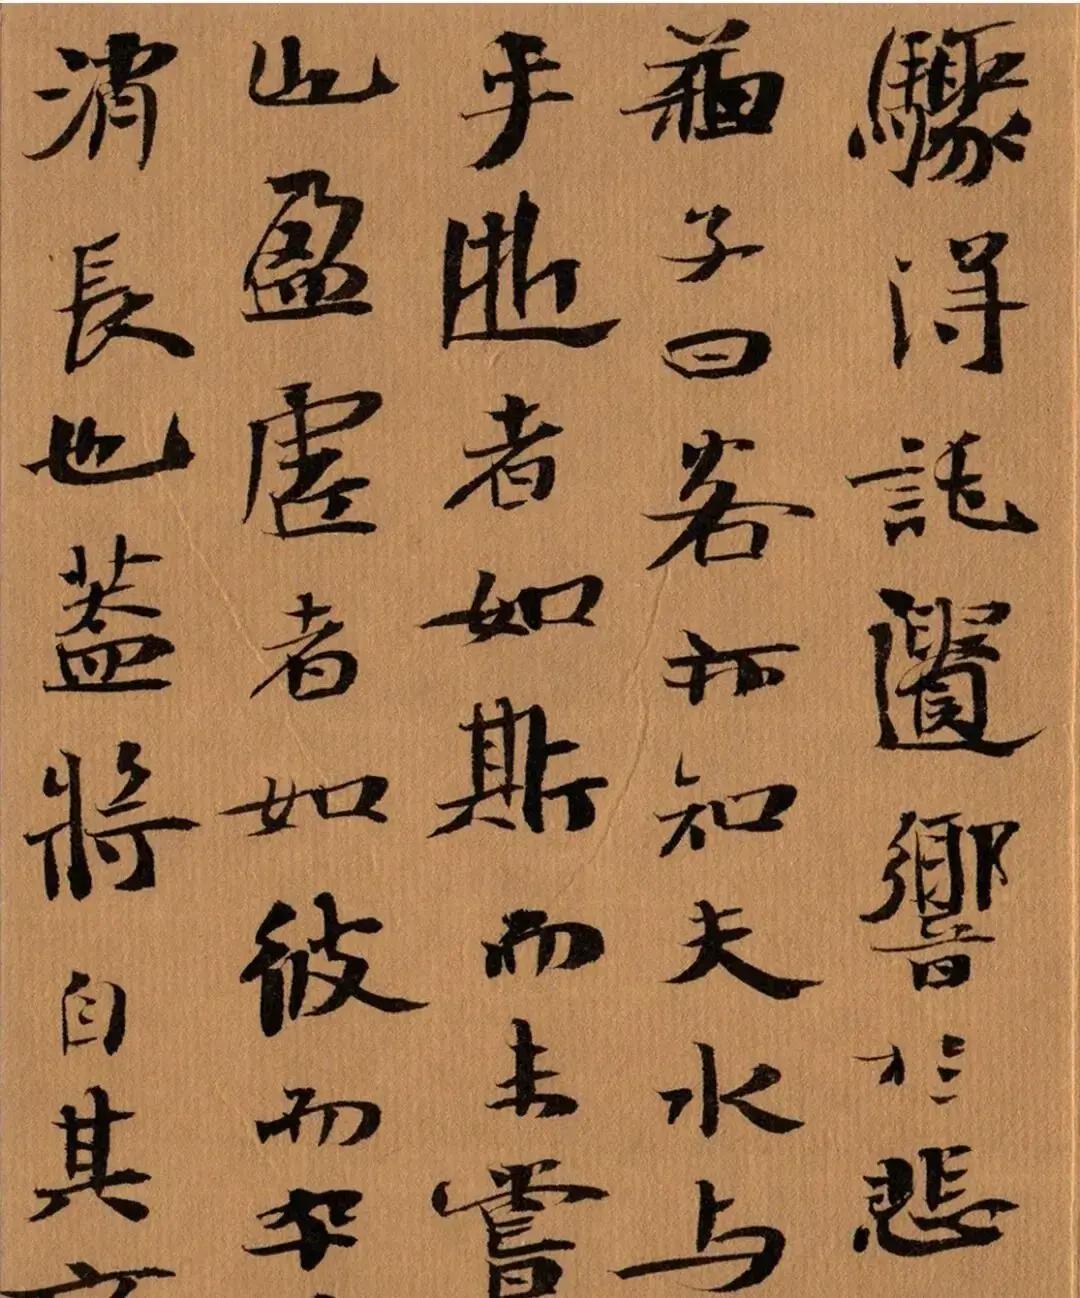 驟得託遺響於悲
蘇子曰客亦知夫水与
乎逝者如斯而未嘗
也盈虛者如彼而卒
消長也蓋將自其